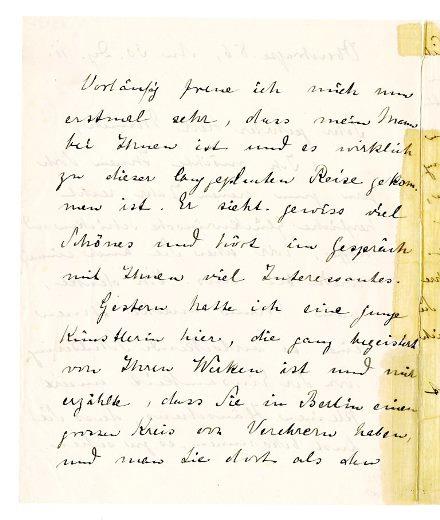 Vorläufig freue ich mich nun
erstmal sehr, dass mein Mann
bei Ihnen ist und es wirklich
zu dieser langgeplanten Reise gekom-
men ist. Er sieht gewiss viel
Schönes und hört im Gespräch
mit Ihnen viel Interessantes.
Gestern hatte ich eine junge
Künstlerin hier, die ganz begeistert
von Ihren Wirken ist und mir
erzählte, dass Sie in Berlin einen
grossen Kreis von Verehrern haben,
und man Sie dort als den